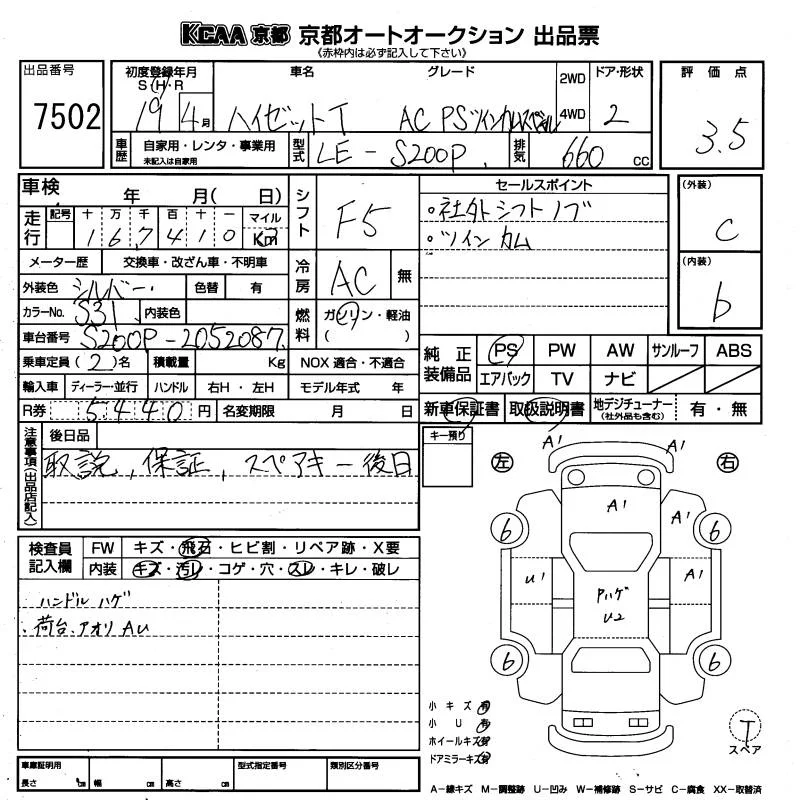 KCAA 京都 京都オートオークション 出品票
《赤枠内は必ず記入して下さい》
出品番号
7502
初度登録年月
S・H・R
19 4月
車名
ハイゼットT
グレード
AC PS ツインカムスペシャル
2WD
4WD
ドア・形状
2
評価点
3.5
車歴
自家用・レンタ・事業用
未記入は自家用
型式
LE-S200P
排気
660 CC
車検 年 月( 日)
シフト
F5
セールスポイント
・社外シフトノブ
・ツインカム
(外装)
C
(内装)
b
走行
記号 十 万 千 百 十 一 マイル
1 6 7 4 1 0 Km
メーター歴 交換車・改ざん車・不明車
冷房
AC 無
外装色 シルバー 色替 有
カラーNo. S31 内装色
燃料
ガソリン・軽油
( )
車台番号 S200P-2052087
乗車定員 (2)名 積載量 Kg NOX 適合・不適合
輸入車 ディーラー・並行 ハンドル 右H・左H モデル年式 年
R券 5440円 名変期限 月 日
純正装備品
PS PW AW サンルーフ ABS
エアバック TV ナビ
新車保証書 取扱説明書 地デジチューナー(社外品も含む) 有・無
注意事項(出品店記入)
後日品
取説, 保証, スペアキー後日
キー預り
検査員記入欄
FW キズ・飛石・ヒビ割・リペア跡・X要
内装 キズ・汚レ・コゲ・穴・スレ・キレ・破レ
ハンドルハゲ
・荷台、アオリ AU
左 右
A1 A1
A1 A1
6 6
U1 A1
Pハゲ
U2
6 6
小キズ 有
小U 有
ホイールキズ 有
ドアミラーキズ 有
T
スペア
車庫証明用 型式指定番号 類別区分番号
長さ cm 幅 cm 高さ cm
A-線キズ M-調整跡 U-凹み W-補修跡 S-サビ C-腐食 XX-取替済